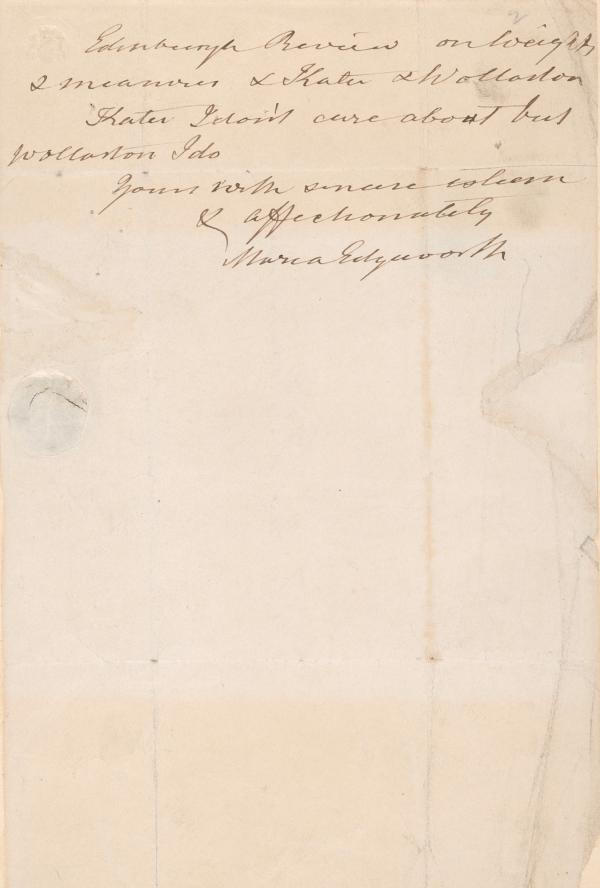 2
Edinburgh Review on Weights
& measures & Kater & Wollaston
Kater I don't care about but
Wollaston I do
Yours with sincere esteem
& affectionately
Maria Edgeworth